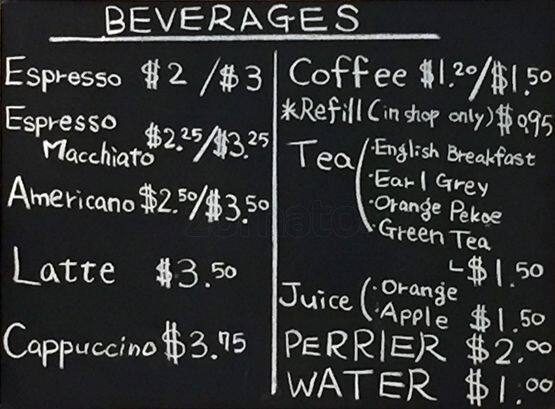 BEVERAGES
Espresso $2/$3
Espresso
Macchiato $2.25/$3.25
Americano $2.50/$3.50
Latte $3.50
Cappuccino $3.75
Coffee $1.20/$1.50
*Refill (in shop only) $0.95
Tea ( ·English Breakfast
·Earl Grey
·Orange Pekoe
·Green Tea
└ $1.50
Juice ( ·Orange
·Apple $1.50
PERRIER $2.00
WATER $1.00